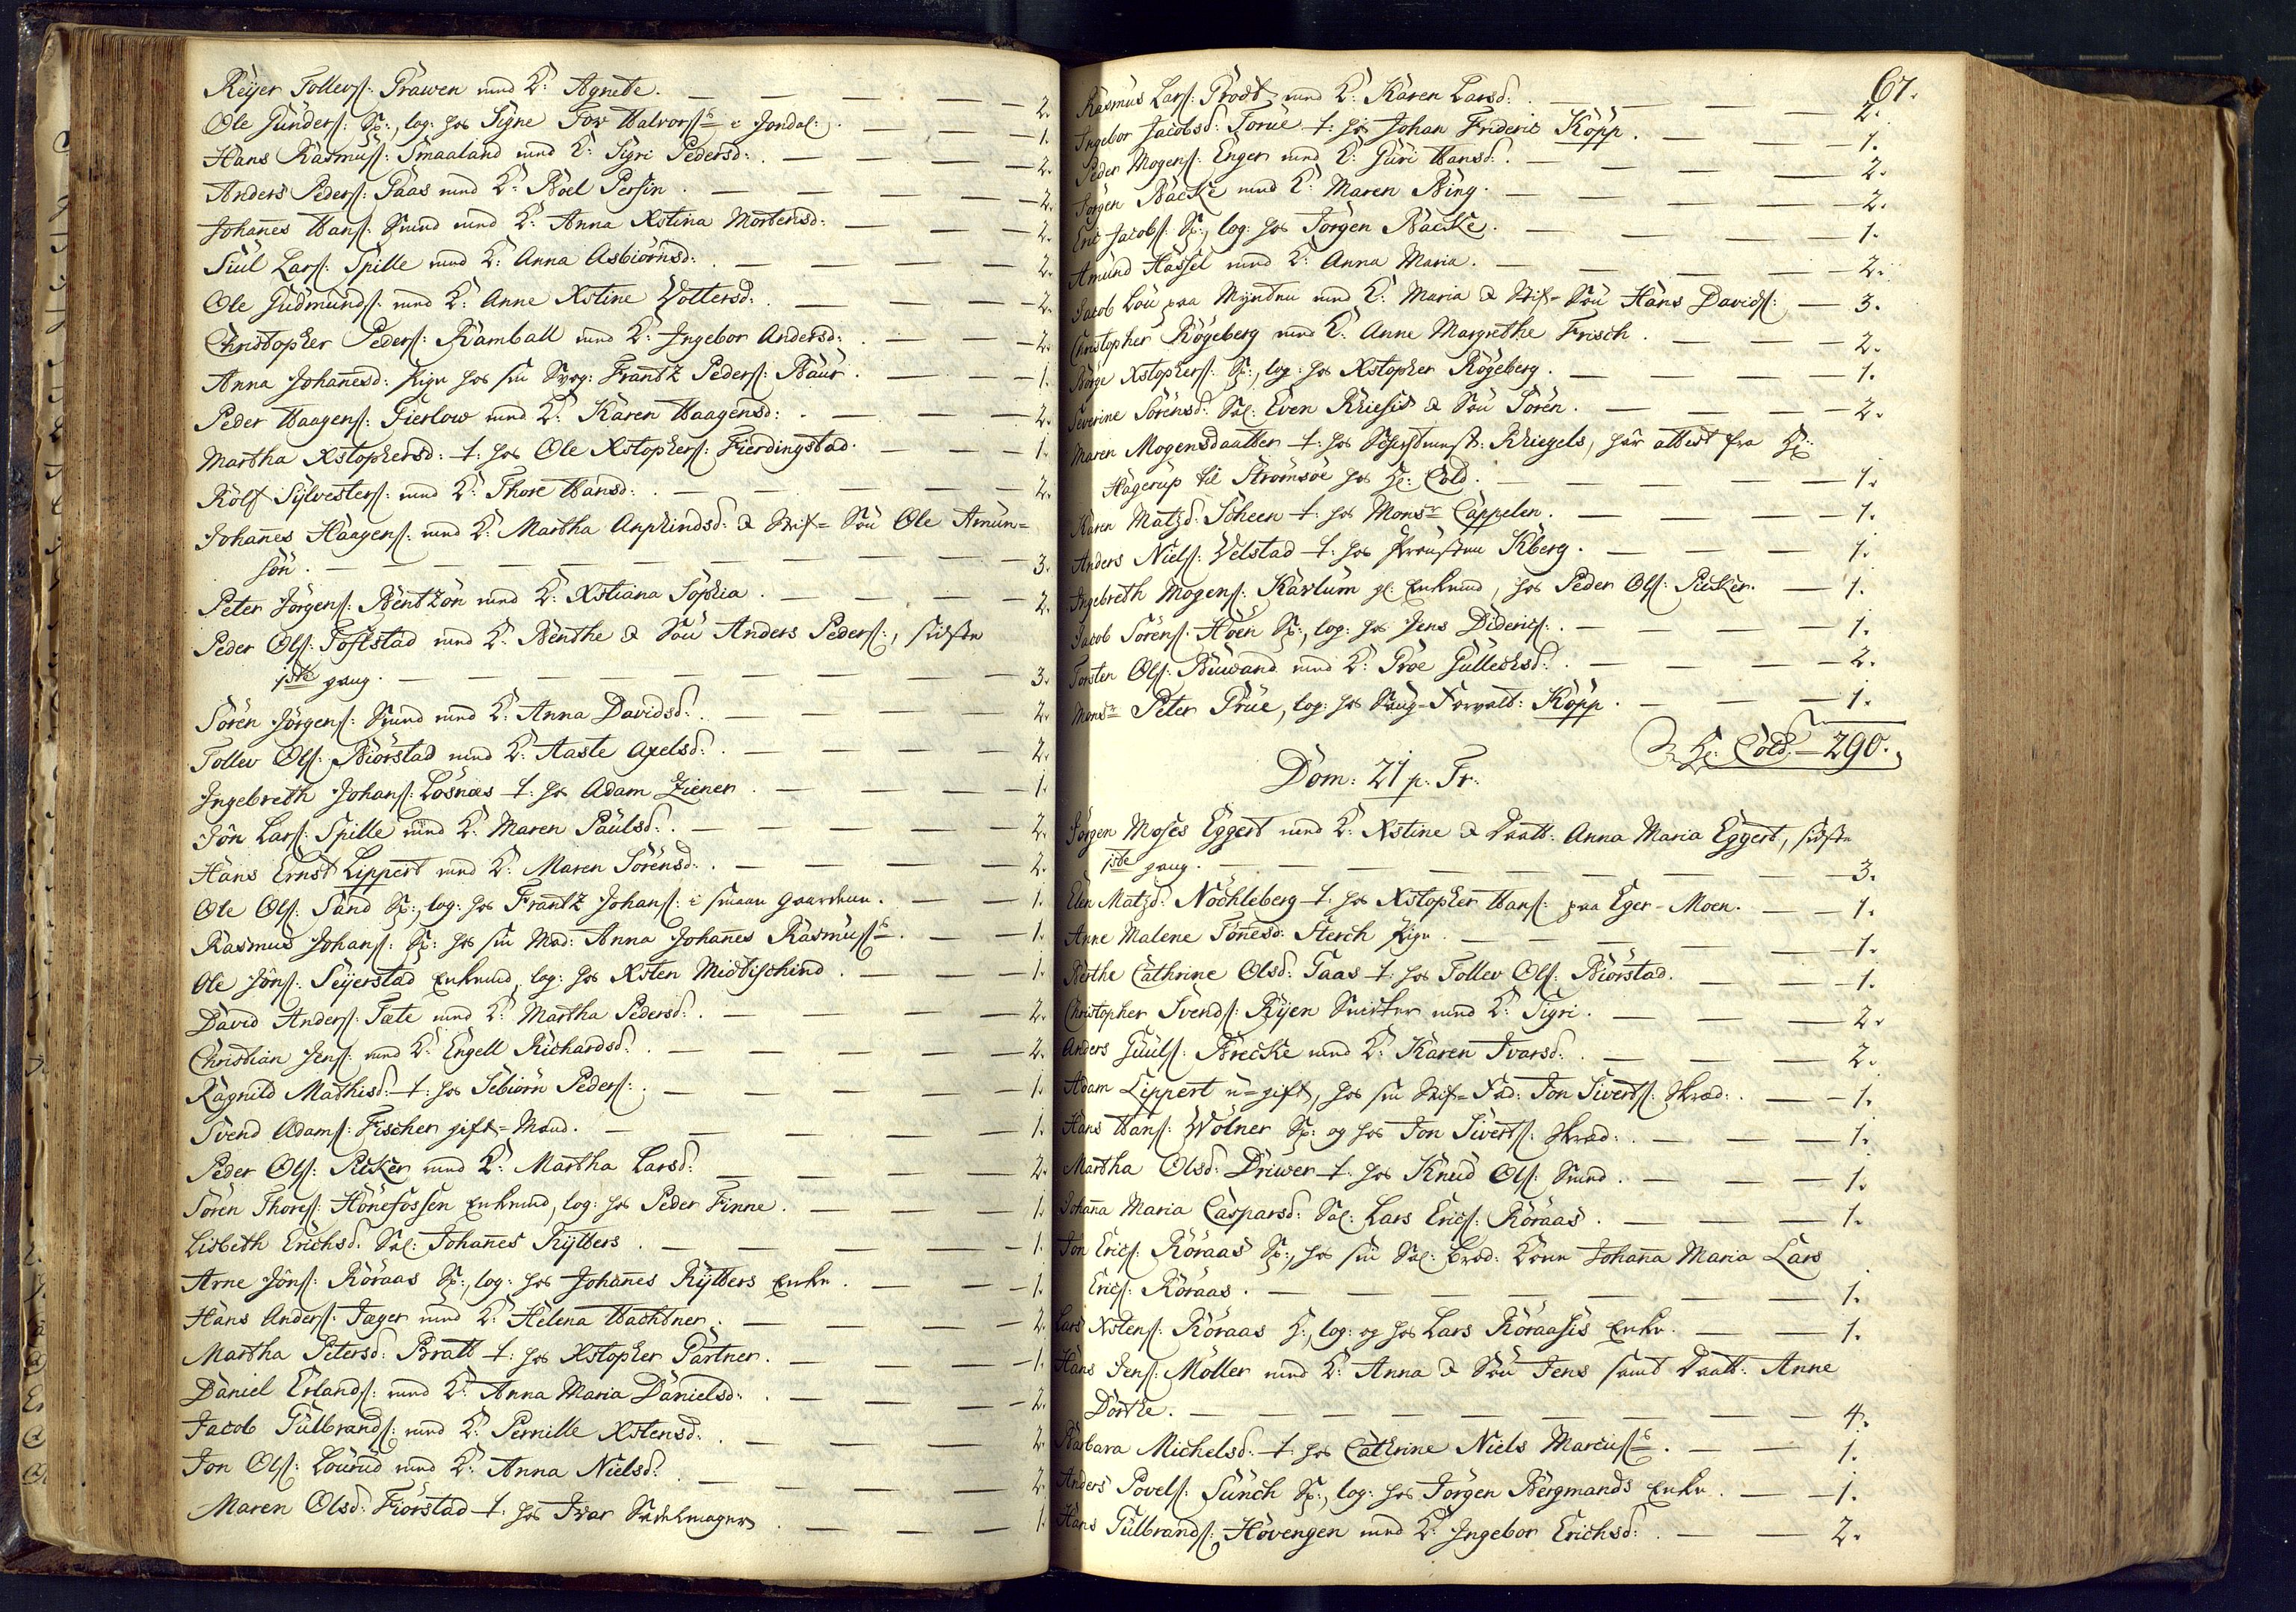 Reyer Tollevs: Prawen med K: Agnete. — 2.
Ole Gunders: S:, log: hos Signe Tow Halvorss i Jondal. — 1.
Hans Rasmuss: Smaaland med K: Sigri Pedersd: — 2.
Anders Peders: Gaas med K: Boel Persin. — 2.
Johanes Hans: Smed med K: Anna Xstina Mortensd: — 2.
Siul Lars: Spille med K: Anna Asbiörnsd: — 2.
Ole Gudmunds: med K: Anne Xstine Wottersd: — 2.
Christopher Peders: Ramball med K: Ingebor Andersd: — 2.
Anna Johanesd: Pige hos sin Svog: Frantz Peders: Baur. — 1.
Peder Haagens: Gierlow med K: Karen Haagensd: — 2.
Martha Xstophersd: t: hos Ole Xstophers: Fierdingstad. — 1.
Rolf Sylvesters: med K: Thore Hansd: — 2.
Johanes Haagens: med K: Martha Anphindsd: & Stif-Sön Ole Amun-
sön. — 3.
Peter Jörgens: Bentzon med K: Xstiana Sophia. — 2.
Peder Ols: Toftstad med K: Benthe & Sön Anders Peders:, sidste
1ste gang. — 3.
Sören Jörgens: Smed med K: Anna Davidsd: — 2.
Tollev Ols: Biörstad med K: Aaste Axelsd: — 2.
Ingebreth Johans: Lösnæs t: hos Adam Ziener. — 1.
Jön Lars: Spille med K: Maren Paulsd: — 2.
Hans Ernst Lippert med K: Maren Sörensd: — 2.
Ole Ols: Sand S:, log: hos Frantz Johans: i smaae Gaardene. — 1.
Rasmus Johans: S: hos sin Mod: Anna Johanes Rasmuss. — 1.
Ole Jöns: Seyerstad Enkemd, log: hos Xsten Midtischind. — 1.
David Anders: Tæte med K: Martha Pedersd: — 2.
Christian Jens: med K: Engell Richardsd: — 2.
Ragnild Mathisd: t: hos Sebiörn Peders: — 1.
Svend Adams: Fischer gift-Mand. — 1.
Peder Ols: Picker med K: Martha Larsd: — 2.
Sören Thores: Hönefossen Enkemd, log: hos Peder Finne. — 1.
Lisbeth Erichsd. Sal: Johanes Rytters. — 1.
Arne Jöns: Röraas S:, log: hos Johanes Rytters Enke. — 1.
Hans Anders: Jæger med K: Helena Wachtner. — 2.
Martha Petersd: Bratt t: hos Xstopher Partner. — 1.
Daniel Erlands: med K: Anna Maria Danielsd: — 2.
Jacob Gulbrands: med K: Pernille Xstensd: — 2.
Jon Ols: Lourud med K: Anna Nielsd: — 2.
Maren Olsd: Fiörstad t: hos Ivar Sadelmager — 1.
67.
Rasmus Lars: Brodt med K: Karen Larsd: — 2.
Ingebor Jacobsd: Torue t: hos Johan Frideric Köpp. — 1.
Peder Mogens: Enger med K: Guri Hansd: — 2.
Jörgen Backe med K: Maren Bing. — 2.
Eric Jacobs: S:, log: hos Jörgen Backe. — 1.
Amund Hassel med K: Anna Maria. — 2.
Jacob Lou paa Mynten med K: Maria & Stif-Sön Hans Davids: — 3.
Christopher Rögeberg med K: Anne Margrethe Frisch. — 2.
Börge Xstophers: S:, log: hos Xstopher Rögeberg. — 1.
Severine Sörensd: Sal: Even Kriesis & Sön Sören. — 2.
Maren Mogensdaatter t: hos Kriegels, har attest fra H:
Hagerup til Strömsöe hos H: Cold. — 1.
Karen Matzd: Scheen t: hos Monsr Cappelen. — 1.
Anders Niels: Velstad t: hos Provsten Kberg. — 1.
Ingebreth Mogens: Karlum gl: Enkemd, hos Peder Ols: Picker. — 1.
Jacob Sörens: Höen S:, log: hos Jens Dideriks: — 1.
Torsten Ols: Buwand med K: Groe Gullechsd: — 2.
Monsr Peter Prüe, log: hos Saug-Forvalt: Köpp. — 1.
H: Cold. — 290.
Dom: 21 p. Tr.
Jörgen Moses Eggert med K: Xstine & Daatt: Anna Maria Eggert, sidste
1ste gang. — 3.
Elen Matzd: Nöchleberg t: hos Xstopher Hans: paa Eger-Moen. — 1.
Anne Malene Tönesd: Sterch Pige — 1.
Berthe Cathrine Olsd: Taas t: hos Tollev Ols: Biörstad. — 1.
Christopher Svends: Ryen Snicker med K: Sigri. — 2.
Anders Guuls: Brecke med K: Karen Ivarsd: — 2.
Adam Lippert u-gift, hos sin Stif-Fad: Jon Siverts: Skræd: — 1.
Hans Hans: Wölner S: og hos Jon Siverts: Skræd: — 1.
Martha Olsd: Driwer t: hos Knud Ols: Smed. — 1.
Johana Maria Caspersd: Sal: Lars Erics: Röraas. — 1.
Jon Erics: Röraas S:, hos sin Sal: Brod: Kone Johana Maria Lars
Erics: Röraas. — 1.
Lars Xstens: Röraas S:, log: og hos Lars Röraasis Enke. — 1.
Hans Jens: Möller med K: Anna & Sön Jens samt Daatt: Anne
Dorthe. — 4.
Barbara Michelsd: t: hos Cathrine Niels Marcuss. — 1.
Anders Povels: Sünch S:, log: hos Jörgen Bergmands Enke. — 1.
Hans Gulbrands: Hövengen med K: Ingebor Erichsd: — 2.